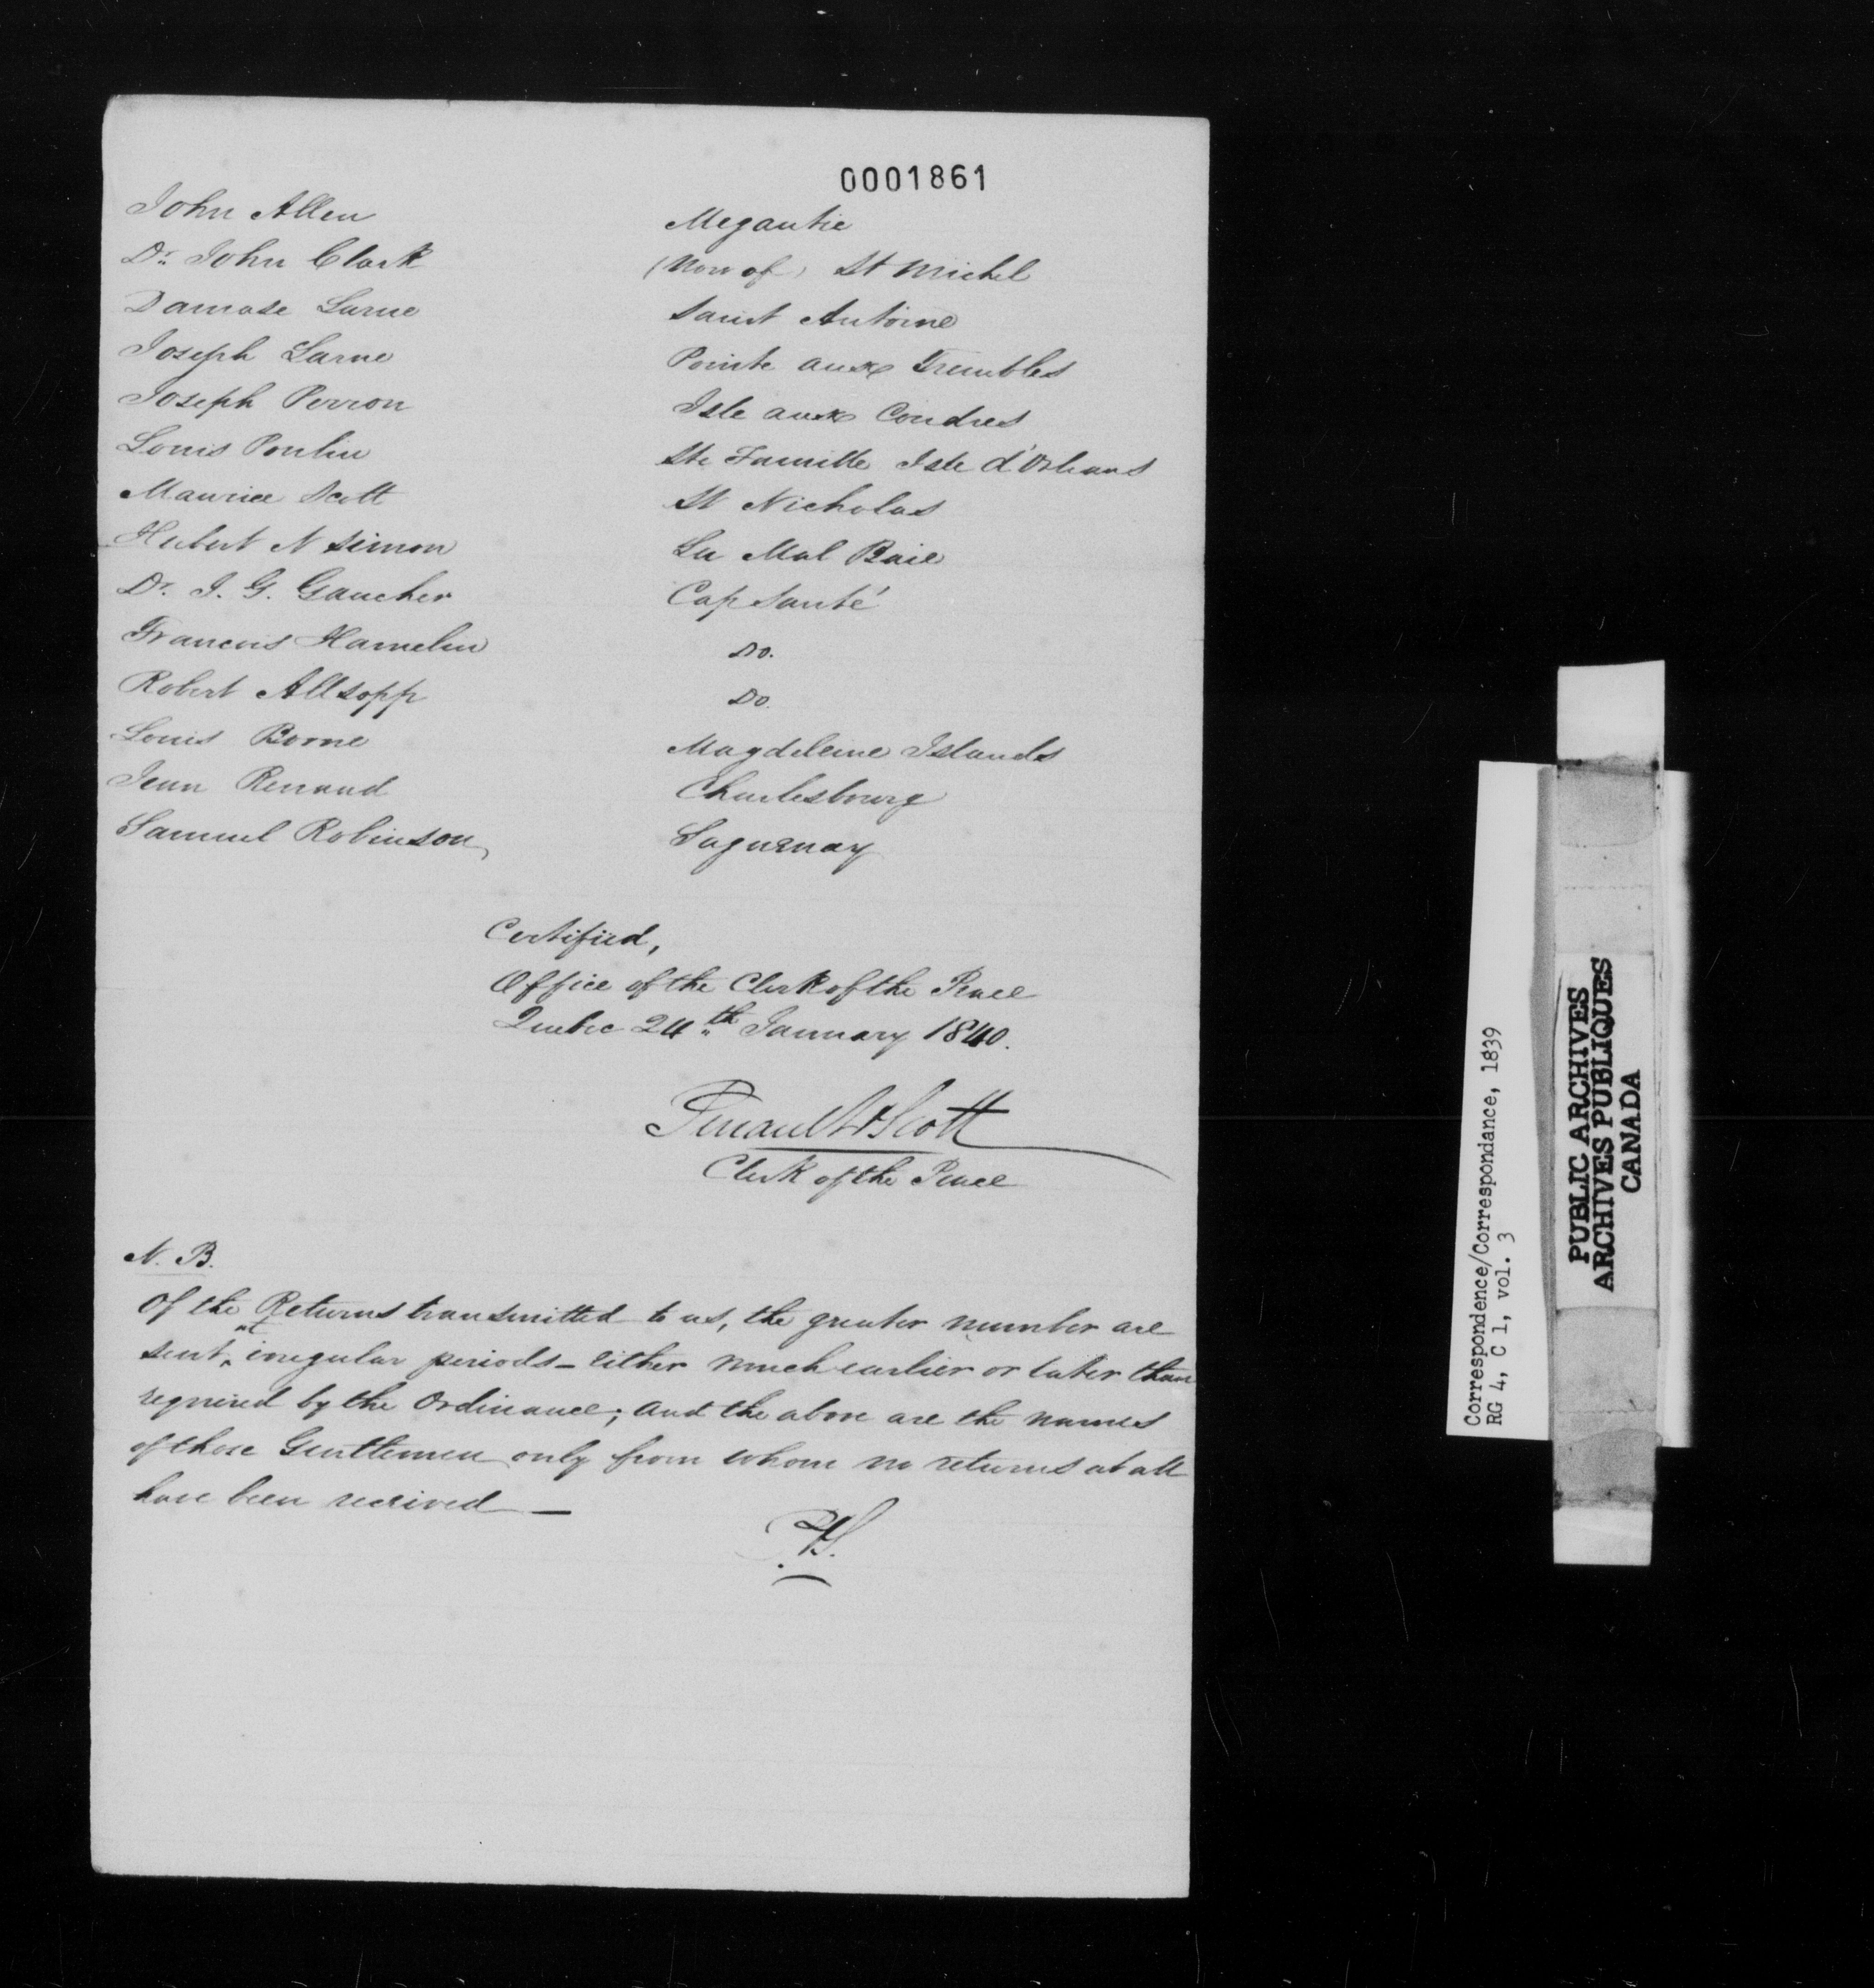 0001861
John Allen Megantic
Dr. John Clark (Now of) St Michel
Damase Larue Saint Antoine
Joseph Larue Pointe aux Trembles
Joseph Perron Isle aux Coudres
Louis Poulin Ste Famille Isle d'Orleans
Maurice Scott St Nicholas
Hubert N Simon La Mal Baie
Dr. I. G. Gaucher Cap Santé
Francois Hamelin Do.
Robert Allsopp Do.
Louis Borne Magdeleine Islands
Jean Renaud Charlesbourg
Samuel Robinson Saguenay
Certified,
Office of the Clerk of the Peace
Quebec 24th January 1840.
Perrault & Scott
Clerk of the Peace
N. B.
Of the Returns transmitted to us, the greater number are
sent at irregular periods - either much earlier or later than
required by the Ordinance; and the above are the names
of those Gentlemen only from whom no returns at all
have been received —
Correspondence/Correspondance, 1839
RG 4, C 1, vol. 3
PUBLIC ARCHIVES
ARCHIVES PUBLIQUES
CANADA